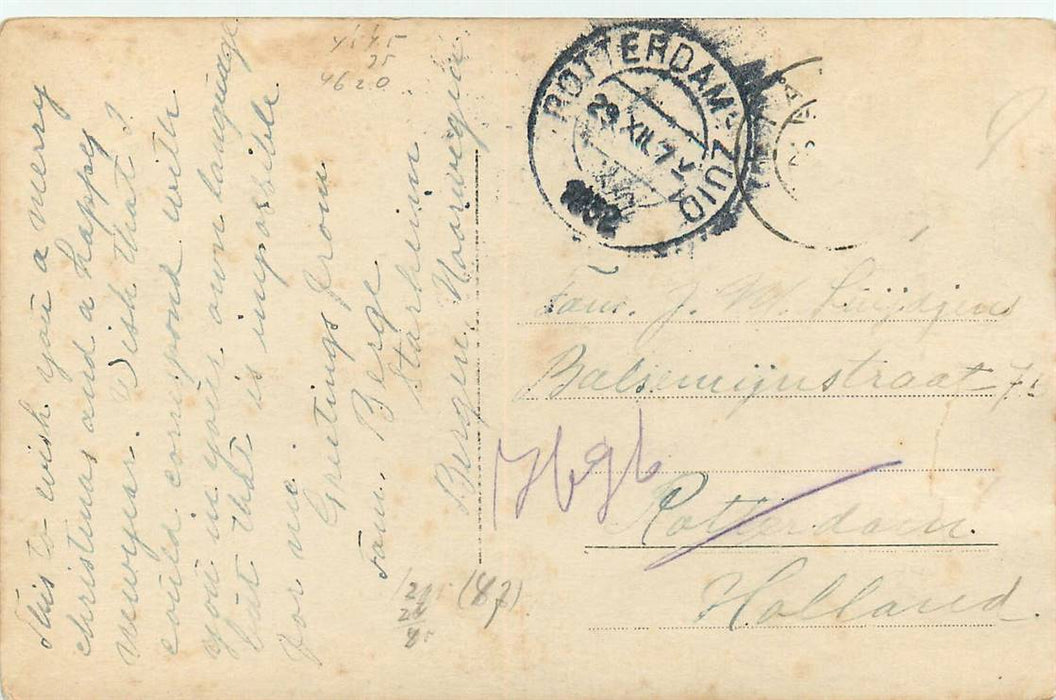 This to wish you a merry
christemas and a happy
newoyear. Wish that I
could corrispond with
you in yours own language
but that is impossible
for me.
Greetings from
Fam. Berge
Starheim
Bergen Noorwegen
4620
ROTTERDAM-ZUID
23 XII.7
1932
Fam. J. W.
Balsemijnstraat 7
Rotterdam.
Holland.
(87)